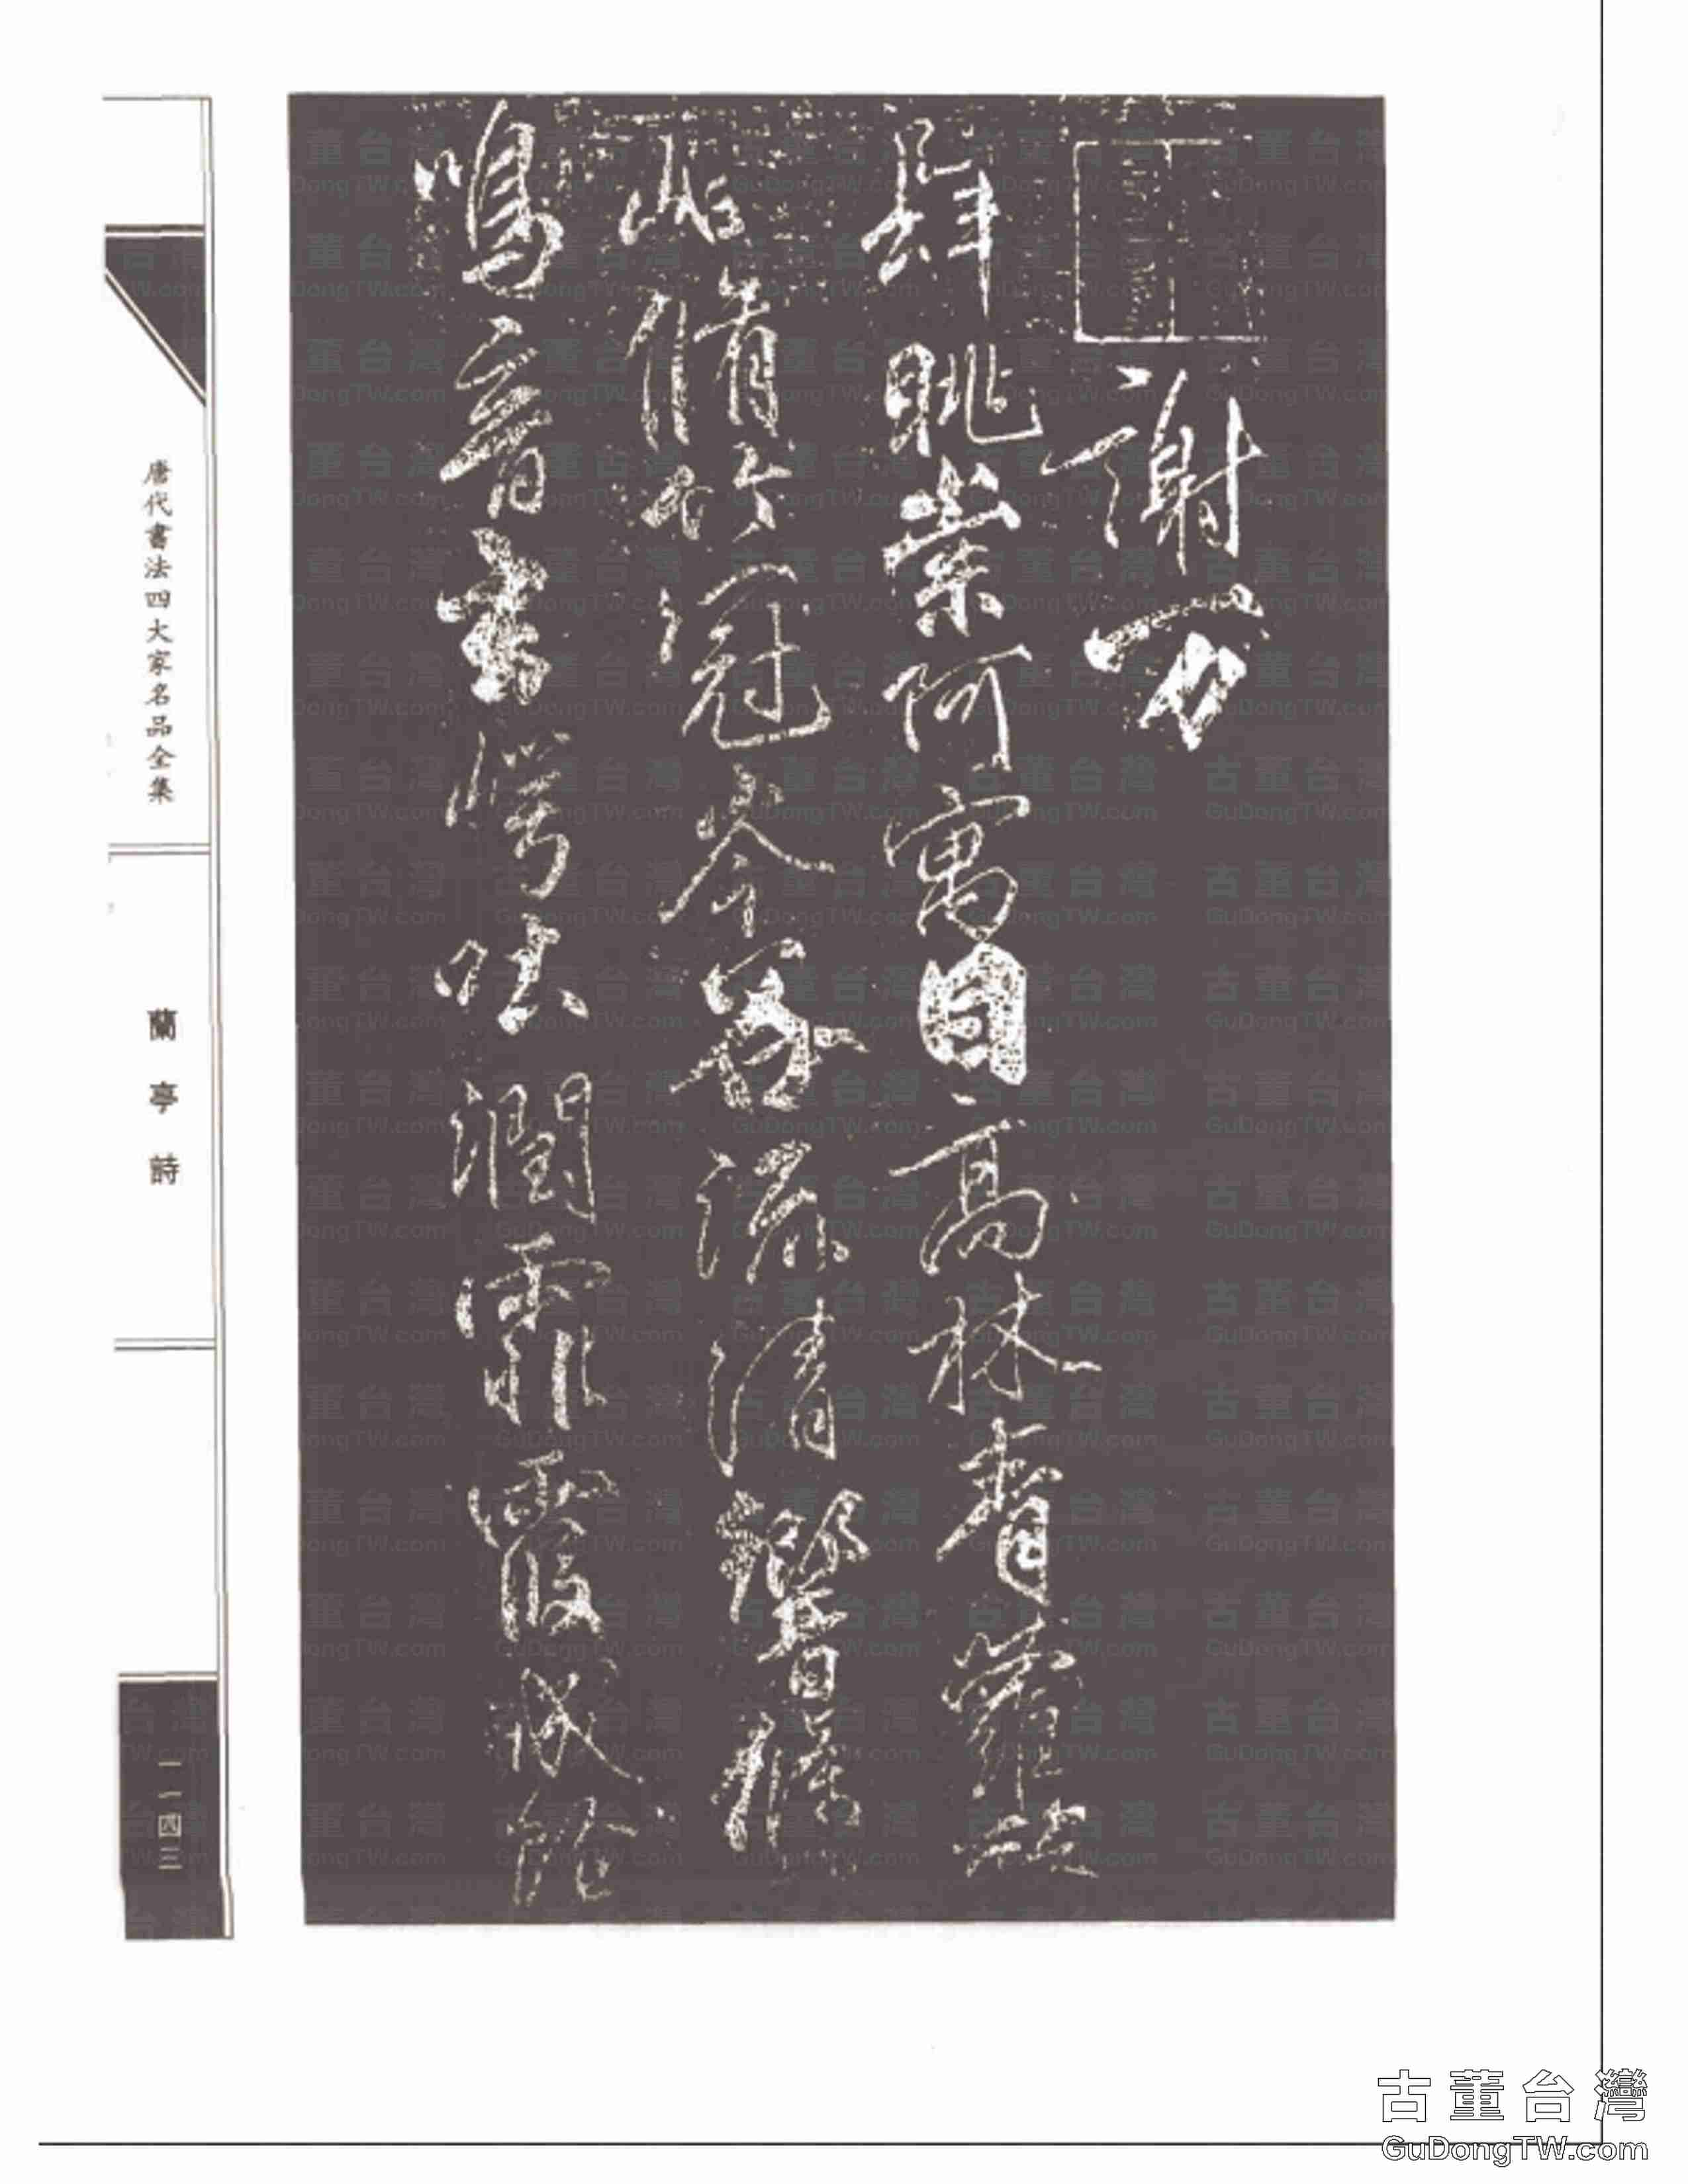 謝万
肆眺崇阿寓目高林青蘿翳
岫脩竹冠岑谷流清響條
鳴音玄崿吐潤霏霧成陰
唐代書法四大家名品全集
蘭亭詩
一一四三
古董台灣
GuDongTW.com